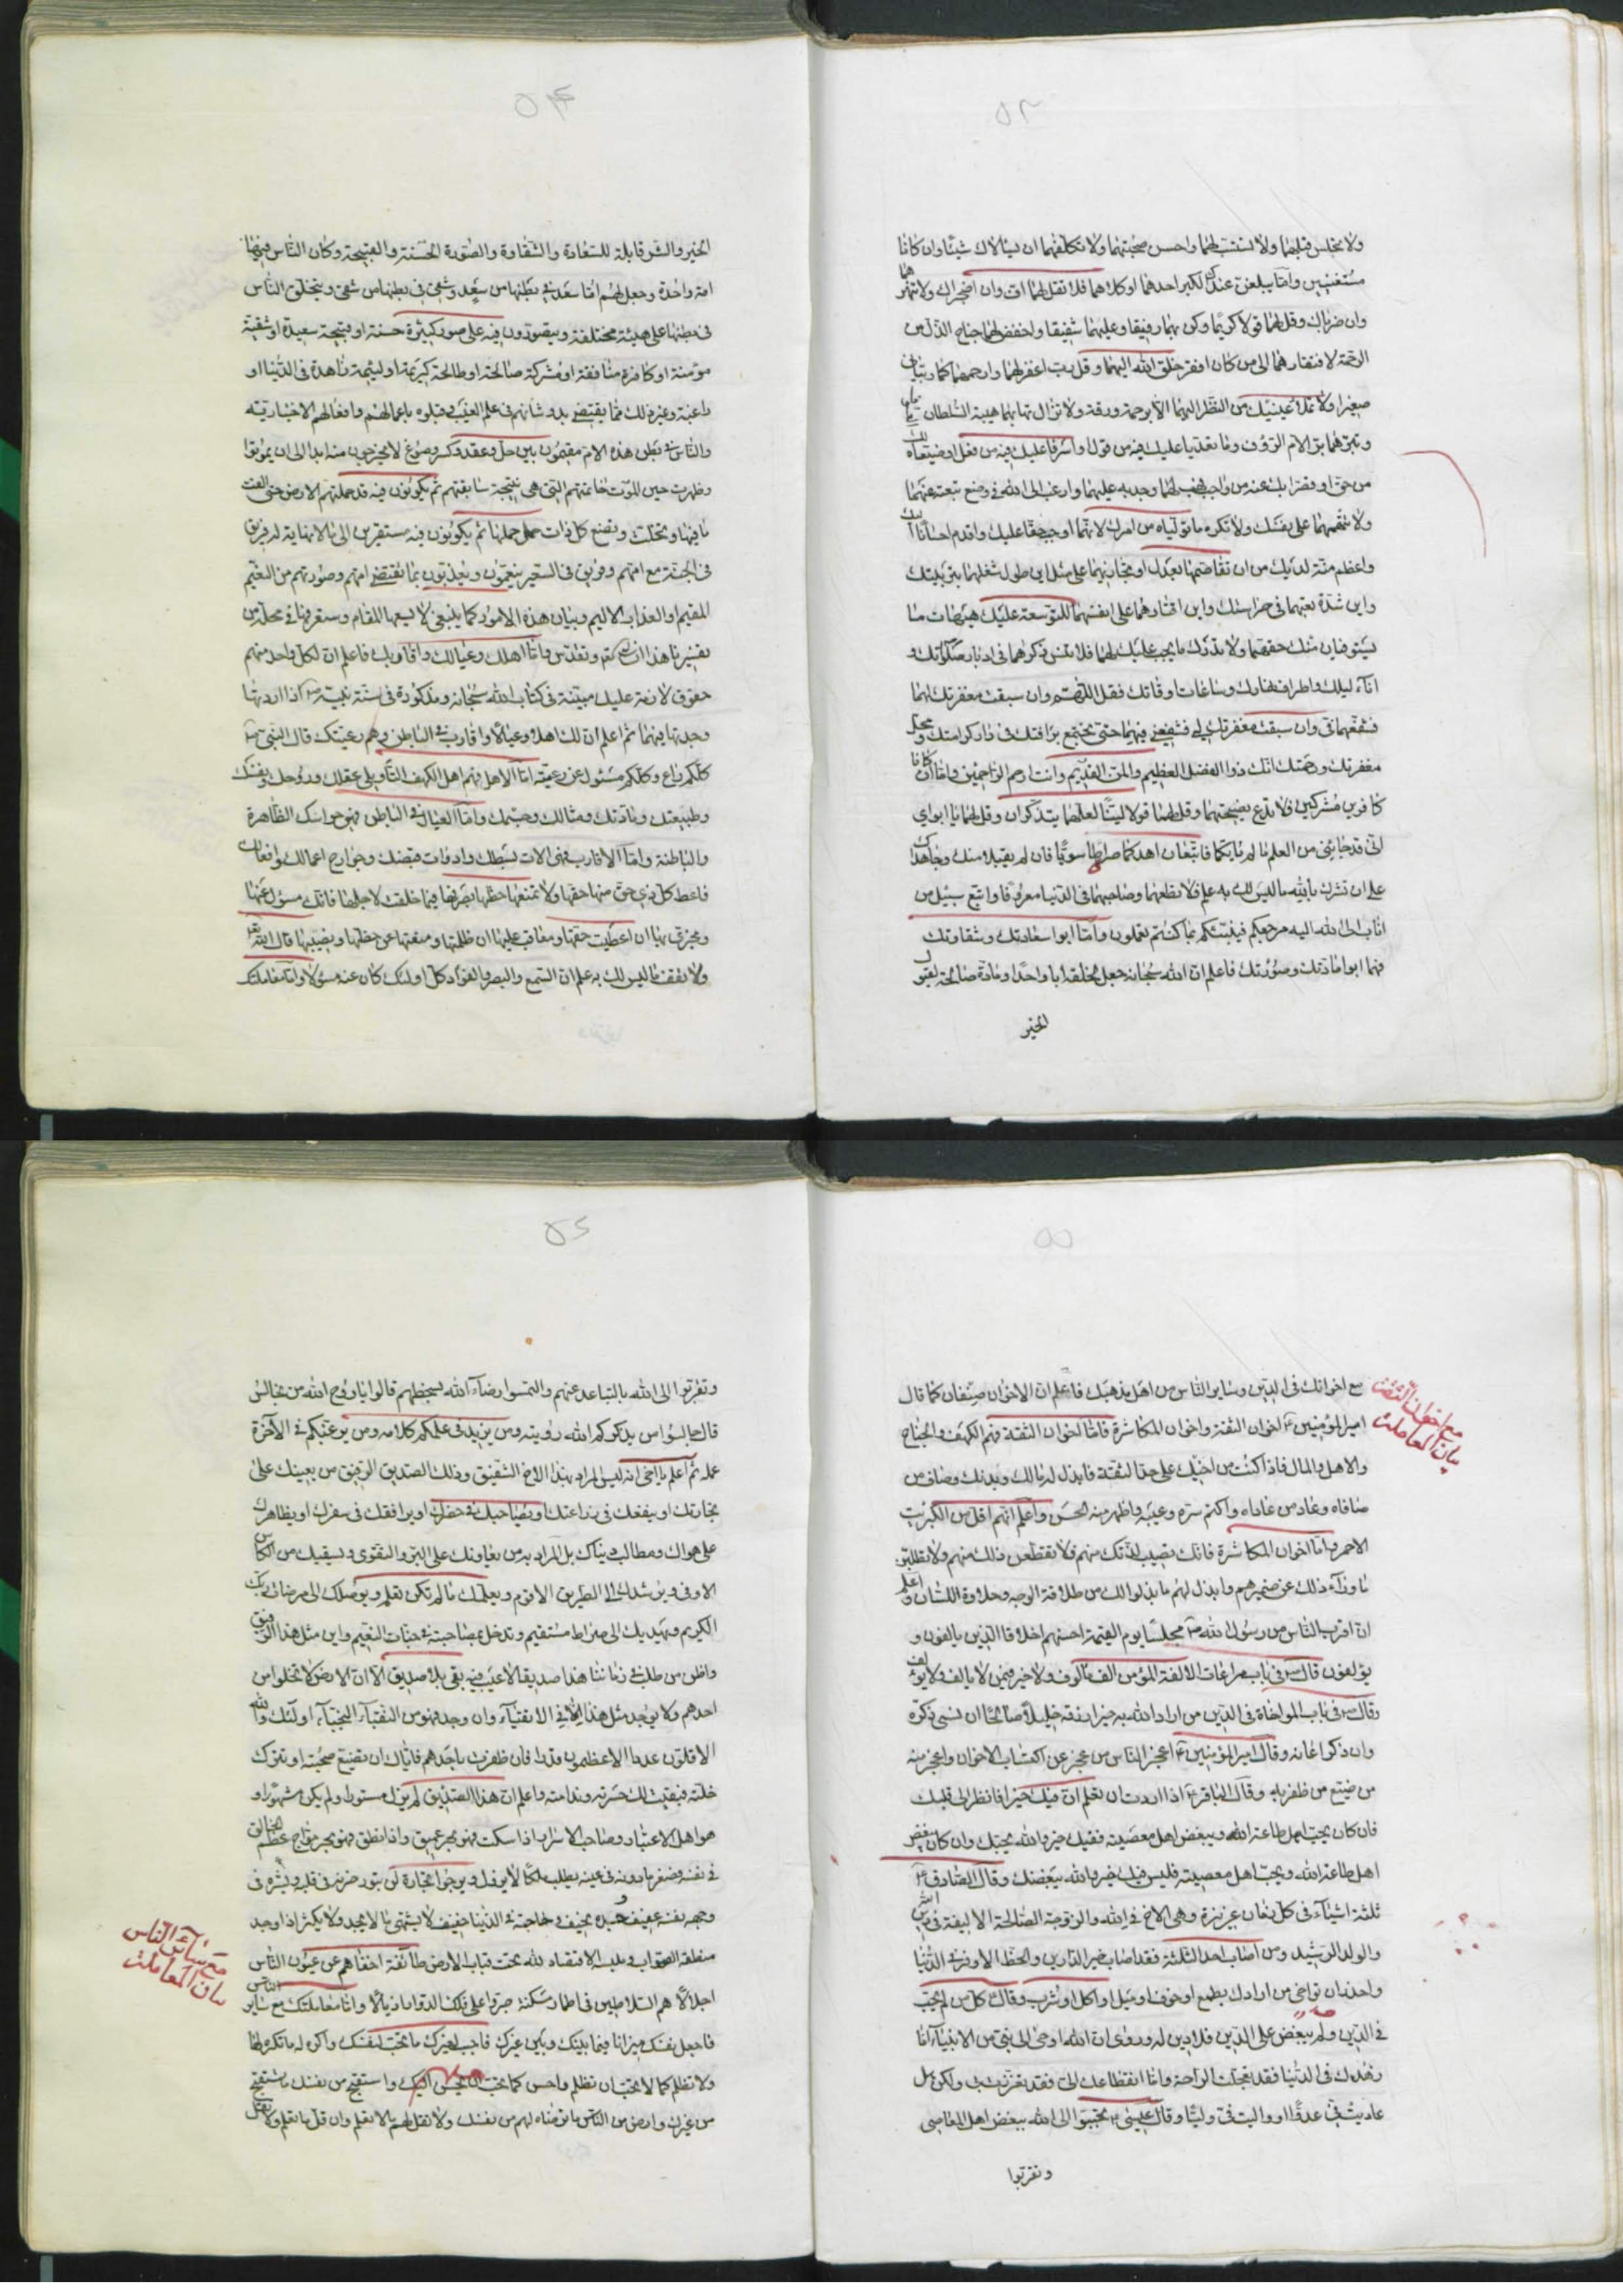 ٥٣
ولا تجلس قبلهما ولا تستتب لهما واحسن صحبتهما ولا تكلفهما ان يسألاك شيئا وان كانا
مستغنيين واما يبلغن عندك الكبر احدهما او كلاهما فلا تقل لهما اف وان اضجراك ولا تنهرهما
وان ضرباك وقل لهما قولا كريما وكن بهما رفيقا وعليهما شفيقا واخفض لهما جناح الذل من
الرحمة لافتقارهما الى من كان افقر خلق الله اليهما وقل رب اغفر لهما وارحمهما كما ربياني
صغيرا ولا تملأ عينيك من النظر اليهما الا برحمة ورقة ولا تزال تهابهما هيبة السلطان
وتبرهما بر الام الرؤف وما تعديا عليك فيه من قول او اسرفا عليك فيه من فعل او ضيعاه لك
من حق او قصرا بك عنه من واجب فهب لهما وجد به عليهما وارغب الى الله في وضع تبعته عنهما
ولا تتهمهما على نفسك ولا تكره ما تولياه من امرك لانهما اوجب حقا عليك واقدم احسانا اليك
واعظم منة لديك من ان تقاصهما بعدل او تجازيهما على مثل اين طول شغلهما بتربيتك
واين شدة تعبهما في حراستك واين اقتارهما على انفسهما للتوسعة عليك هيهات ما
يستوفيان منك حقهما ولا تدرك ما يجب عليك لهما فلا تنس ذكرهما في ادبار صلواتك و
اناء ليلك واطراف نهارك وساعات اوقاتك فقل اللهم وان سبقت مغفرتك لهما
فشفعهما في وان سبقت مغفرتك لي فشفعني فيهما حتى نجتمع برأفتك في دار كرامتك ومحل
مغفرتك ورحمتك انك ذو الفضل العظيم والمن القديم وانت ارحم الراحمين واما ان كانا
كافرين مشركين فلا تدع نصيحتهما وقل لهما قولا لينا لعلهما يتذكران وقل لهما يا ابواي
اني قد جاءني من العلم ما لم يأتكما فاتبعان اهدكما صراطا سويا فان لم يقبلا منك وجاهداك
على ان تشرك بالله ما ليس لك به علم فلا تطعهما وصاحبهما في الدنيا معروفا واتبع سبيل من
اناب الى الله اليه مرجعكم فينبئكم بما كنتم تعملون واما ابوا سعادتك وشقاوتك
فهما ابوا مادتك وصورتك فاعلم ان الله سبحانه جعل لخلقه ابا واحدا ومادة صالحة لقبول
الخير
٥٤
الخير والشر قابلة للسعادة والشقاوة والصورة الحسنة والقبيحة وكان الناس فيها
امة واحدة وجعل لهم اما سعد في بطنها من سعد وشقى في بطنها من شقى ويتخلق الناس
في بطنها على هيئة مختلفة ويتصورون فيه على صور كثيرة حسنة او قبيحة سعيدة او شقية
مؤمنة او كافرة منافقة او مشركة صالحة او طالحة كريمة او لئيمة زاهدة في الدنيا او
راغبة وغير ذلك مما يقتضي بدو شانهم في علم الغيب وقبلوه باعمالهم وافعالهم الاختيارية
والناس في بطن هذه الام مقيمون بين حل وعقد وكسر وصوغ لا يخرجون منه ابدا الى ان يموتوا
وظهرت حين الموت خاتمتهم التي هي نتيجة سابقتهم ثم يكونون فيه قد حملتهم الارض حتى القت
ما فيها وتخلت وتضع كل ذات حمل حملها ثم يكونون فيه مستقرين الى ما لا نهاية له فريق
في الجنة مع امتهم وفريق في السعير ينعمون ويعذبون بما تقتضي امتهم وصورتهم من النعيم
المقيم او العذاب الاليم وبيان هذه الامور كما ينبغي لا يسعها المقام وستعرفها في محله من
تفسيرنا هذا ان شاء الله تعالى وتقدس واما اهلك وعيالك واقاربك فاعلم ان لكل واحد منهم
حقوق لازمة عليك مبينة في كتاب الله سبحانه ومذكورة في سنة نبيه ص اذا اردتها
وجدتها فيهما ثم اعلم ان لك اهلا وعيالا واقارب في الباطن وهم رعيتك قال النبي ص
كلكم راع وكلكم مسئول عن رعيته اما الاهل فهم اهل الكهف التأويلي عقلك وروحك ونفسك
وطبيعتك ومادتك ومثالك وجسمك واما العيال في الباطن فهي حواسك الظاهرة
والباطنة واما الاقارب فهي الات بسطك وادوات قبضك وجوارح اعمالك وافعالك
فاعط كل ذي حق منها حقها ولا تمنعها حظها بصرفها فيما خلقت لاجلها فانك مسؤل عنها
ومجزى بها ان اعطيت حقها ومعاقب عليها ان ظلمتها ومنعتها عن حظها ونصيبها قال الله تع
ولا تقف ما ليس لك به علم ان السمع والبصر والفؤاد كل اولئك كان عنه مسؤلا واما معاملتك
٥٥
مع اخوانك في الدين وساير الناس من اهل مذهبك فاعلم ان الاخوان صنفان كما قال
امير المؤمنين ع اخوان الثقة واخوان المكاشرة فاما اخوان الثقة فهم الكهف والجناح
والاهل والمال فاذا كنت من اخيك على حد الثقة فابذل له مالك وبدنك وصاف من
صافاه وعاد من عاداه واكتم سره وعيبه واظهر منه الحسن واعلم انهم اقل من الكبريت
الاحمر واما اخوان المكاشرة فانك تصيب لذتك منهم فلا تقطعن ذلك منهم ولا تطلبن
ما وراء ذلك عن ضميرهم وابذل لهم ما بذلوا لك من طلاقة الوجه وحلاوة اللسان واعلم
ان اقرب الناس من رسول الله ص مجلسا يوم القيمة احسنهم اخلاقا الذين يالفون و
يؤلفون قال ص في باب مراعات الالفة المؤمن الف مألوف ولا خير فيمن لا يالف ولا يؤلف
وقال ص في باب المواخاة في الدين من اراد الله به خيرا رزقه خليلا صالحا ان نسى ذكره
وان ذكر اعانه وقال امير المؤمنين ع اعجز الناس من عجز عن اكتساب الاخوان واعجز منه
من ضيع من ظفر به وقال الباقر ع اذا اردت ان تعلم ان فيك خيرا فانظر الى قلبك
فان كان يحب اهل طاعة الله ويبغض اهل معصيته ففيك خير والله يحبك وان كان يبغض
اهل طاعة الله ويحب اهل معصيته فليس فيك خير والله يبغضك وقال الصادق ع
ثلثة اشياء في كل زمان عزيزة وهي الاخ في الله والزوجة الصالحة الاليفة في دين الله
والولد الرشيد ومن اصاب احد الثلثة فقد اصاب خير الدارين والحظ الاوفر في الدنيا
واحذر ان تواخي من ارادك بطمع او خوف او ميل او اكل او شرب وقال ص كل من لم يحب
في الدين ولم يبغض على الدين فلا دين له وروى ان الله اوحى الى نبي من الانبياء اما
زهدك في الدنيا فقد تعجلت الراحة واما انقطاعك الي فقد تعززت بي ولكن هل
عاديت في عدوا او واليت في وليا وقال عيسى ع تحببوا الى الله ببغض اهل المعاصي
وتقربوا
مع اخوان الثقة
بيان المعاملة
٥٦
وتقربوا الى الله بالتباعد عنهم والتمسوا رضاء الله بسخطهم قالوا يا روح الله من نجالس
قال جالسوا من يذكركم الله رؤيته ومن يزيد في علمكم كلامه ومن يرغبكم في الاخرة
عمله ثم اعلم يا اخي انه ليس المراد بهذا الاخ الشفيق وذلك الصديق الرفيق من يعينك على
تجارتك او ينفعك في زراعتك او يصاحبك في حضرك او يرافقك في سفرك او يظاهرك
على هواك ومطالب دنياك بل المراد به من يعاونك على البر والتقوى ويسقيك من الكاس
الاوفى ويرشدك الى الطريق الاقوم ويعلمك ما لم تكن تعلم ويوصلك الى مرضات ربك
الكريم ويهديك الى صراط مستقيم وتدخل بمصاحبته في جنات النعيم واين مثل هذا الرفيق
واظن من طلب في زماننا هذا صديقا لا عيب فيه بقى بلا صديق الا ان الارض لا تخلوا من
احدهم ولا يوجد مثل هذا الا في الاتقياء وان وجد فهو من النقباء النجباء اولئك والله
الاقلون عددا الاعظمون قدرا فان ظفرت باحدهم فاياك ان تضيع صحبته او تترك
خلته فيبقى لك حسرته وندامته واعلم ان هذا الصديق لم يزل مستورا ولم يكن مشهورا و
هو اهل الاعتبار وصاحب الاسرار اذا سكت فهو بحر عميق واذا نطق فهو بحر مواج عظم الخالق
في نفسه فصغر ما دونه في عينه يطلب ملكا لا يزول ويرجوا تجارة لن تبور حزنه في قلبه وبشره في
وجهه نفسه عفيف وجسده نحيف وحاجته في الدنيا خفيف لا يشتهي ما لا يجد ولا يكثر اذا وجد
منطقه الصواب وملبسه الاقتصاد لله تحت قباب الارض طائفة اخفاهم عن عيون الناس
اجلالا هم السلاطين في اطمار مسكنة جروا على فلك الدوار اذيالا واما معاملتك مع ساير الناس
فاجعل نفسك ميزانا فيما بينك وبين غيرك فاحب لغيرك ما تحب لنفسك واكره له ما تكره لها
ولا تظلم كما لا تحب ان تظلم واحسن كما تحب ان يحسن اليك واستقبح من نفسك ما تستقبح
من غيرك وارض من الناس ما ترضاه لهم من نفسك ولا تقل لهم ما لا تعلم وان قل ما تعلم ولا تقل
مع سائر الناس
بيان المعاملة